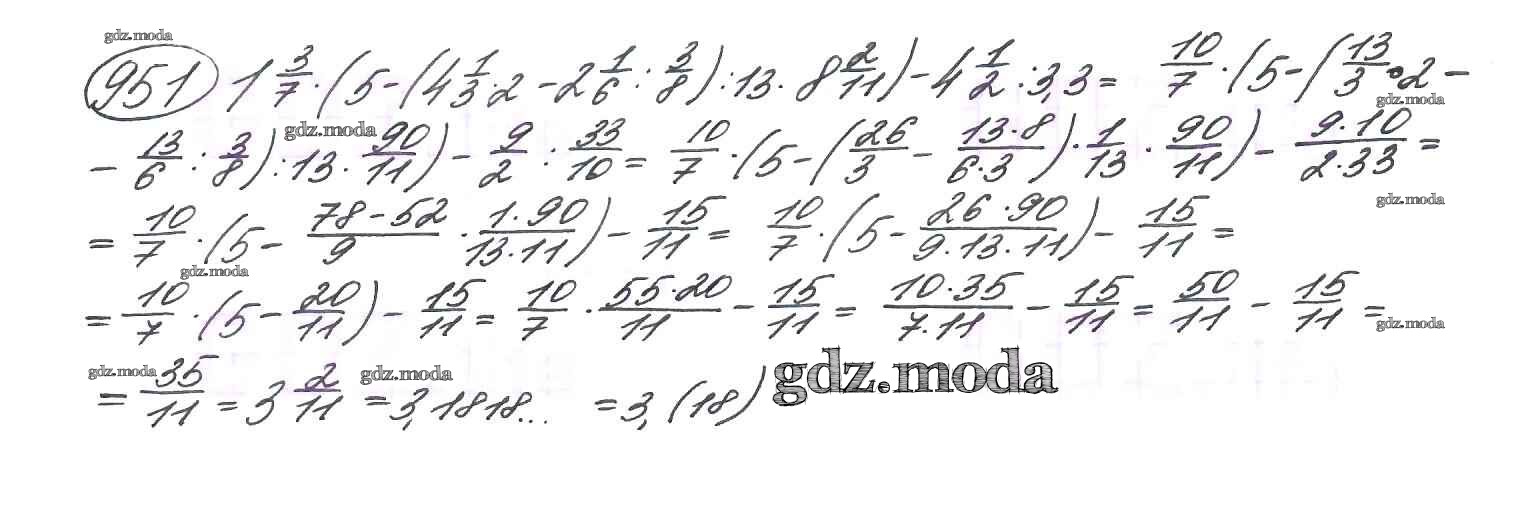 gdz.moda
951 1 3/7 · (5 - (4 1/3 · 2 - 2 1/6 : 3/8) : 13 · 8 2/11) - 4 1/2 : 3,3 = 10/7 · (5 - (13/3 · 2 -
gdz.moda
gdz.moda
- 13/6 : 3/8) : 13 · 90/11) - 9/2 : 33/10 = 10/7 · (5 - (26/3 - 13·8/6·3) · 1/13 · 90/11) - 9·10/2·33 =
gdz.moda
= 10/7 · (5 - 78-52/9 · 1·90/13·11) - 15/11 = 10/7 · (5 - 26·90/9·13·11) - 15/11 =
gdz.moda
= 10/7 · (5 - 20/11) - 15/11 = 10/7 · 55·20/11 - 15/11 = 10·35/7·11 - 15/11 = 50/11 - 15/11 =
gdz.moda
gdz.moda gdz.moda gdz.moda
= 35/11 = 3 2/11 = 3,1818... = 3,(18)